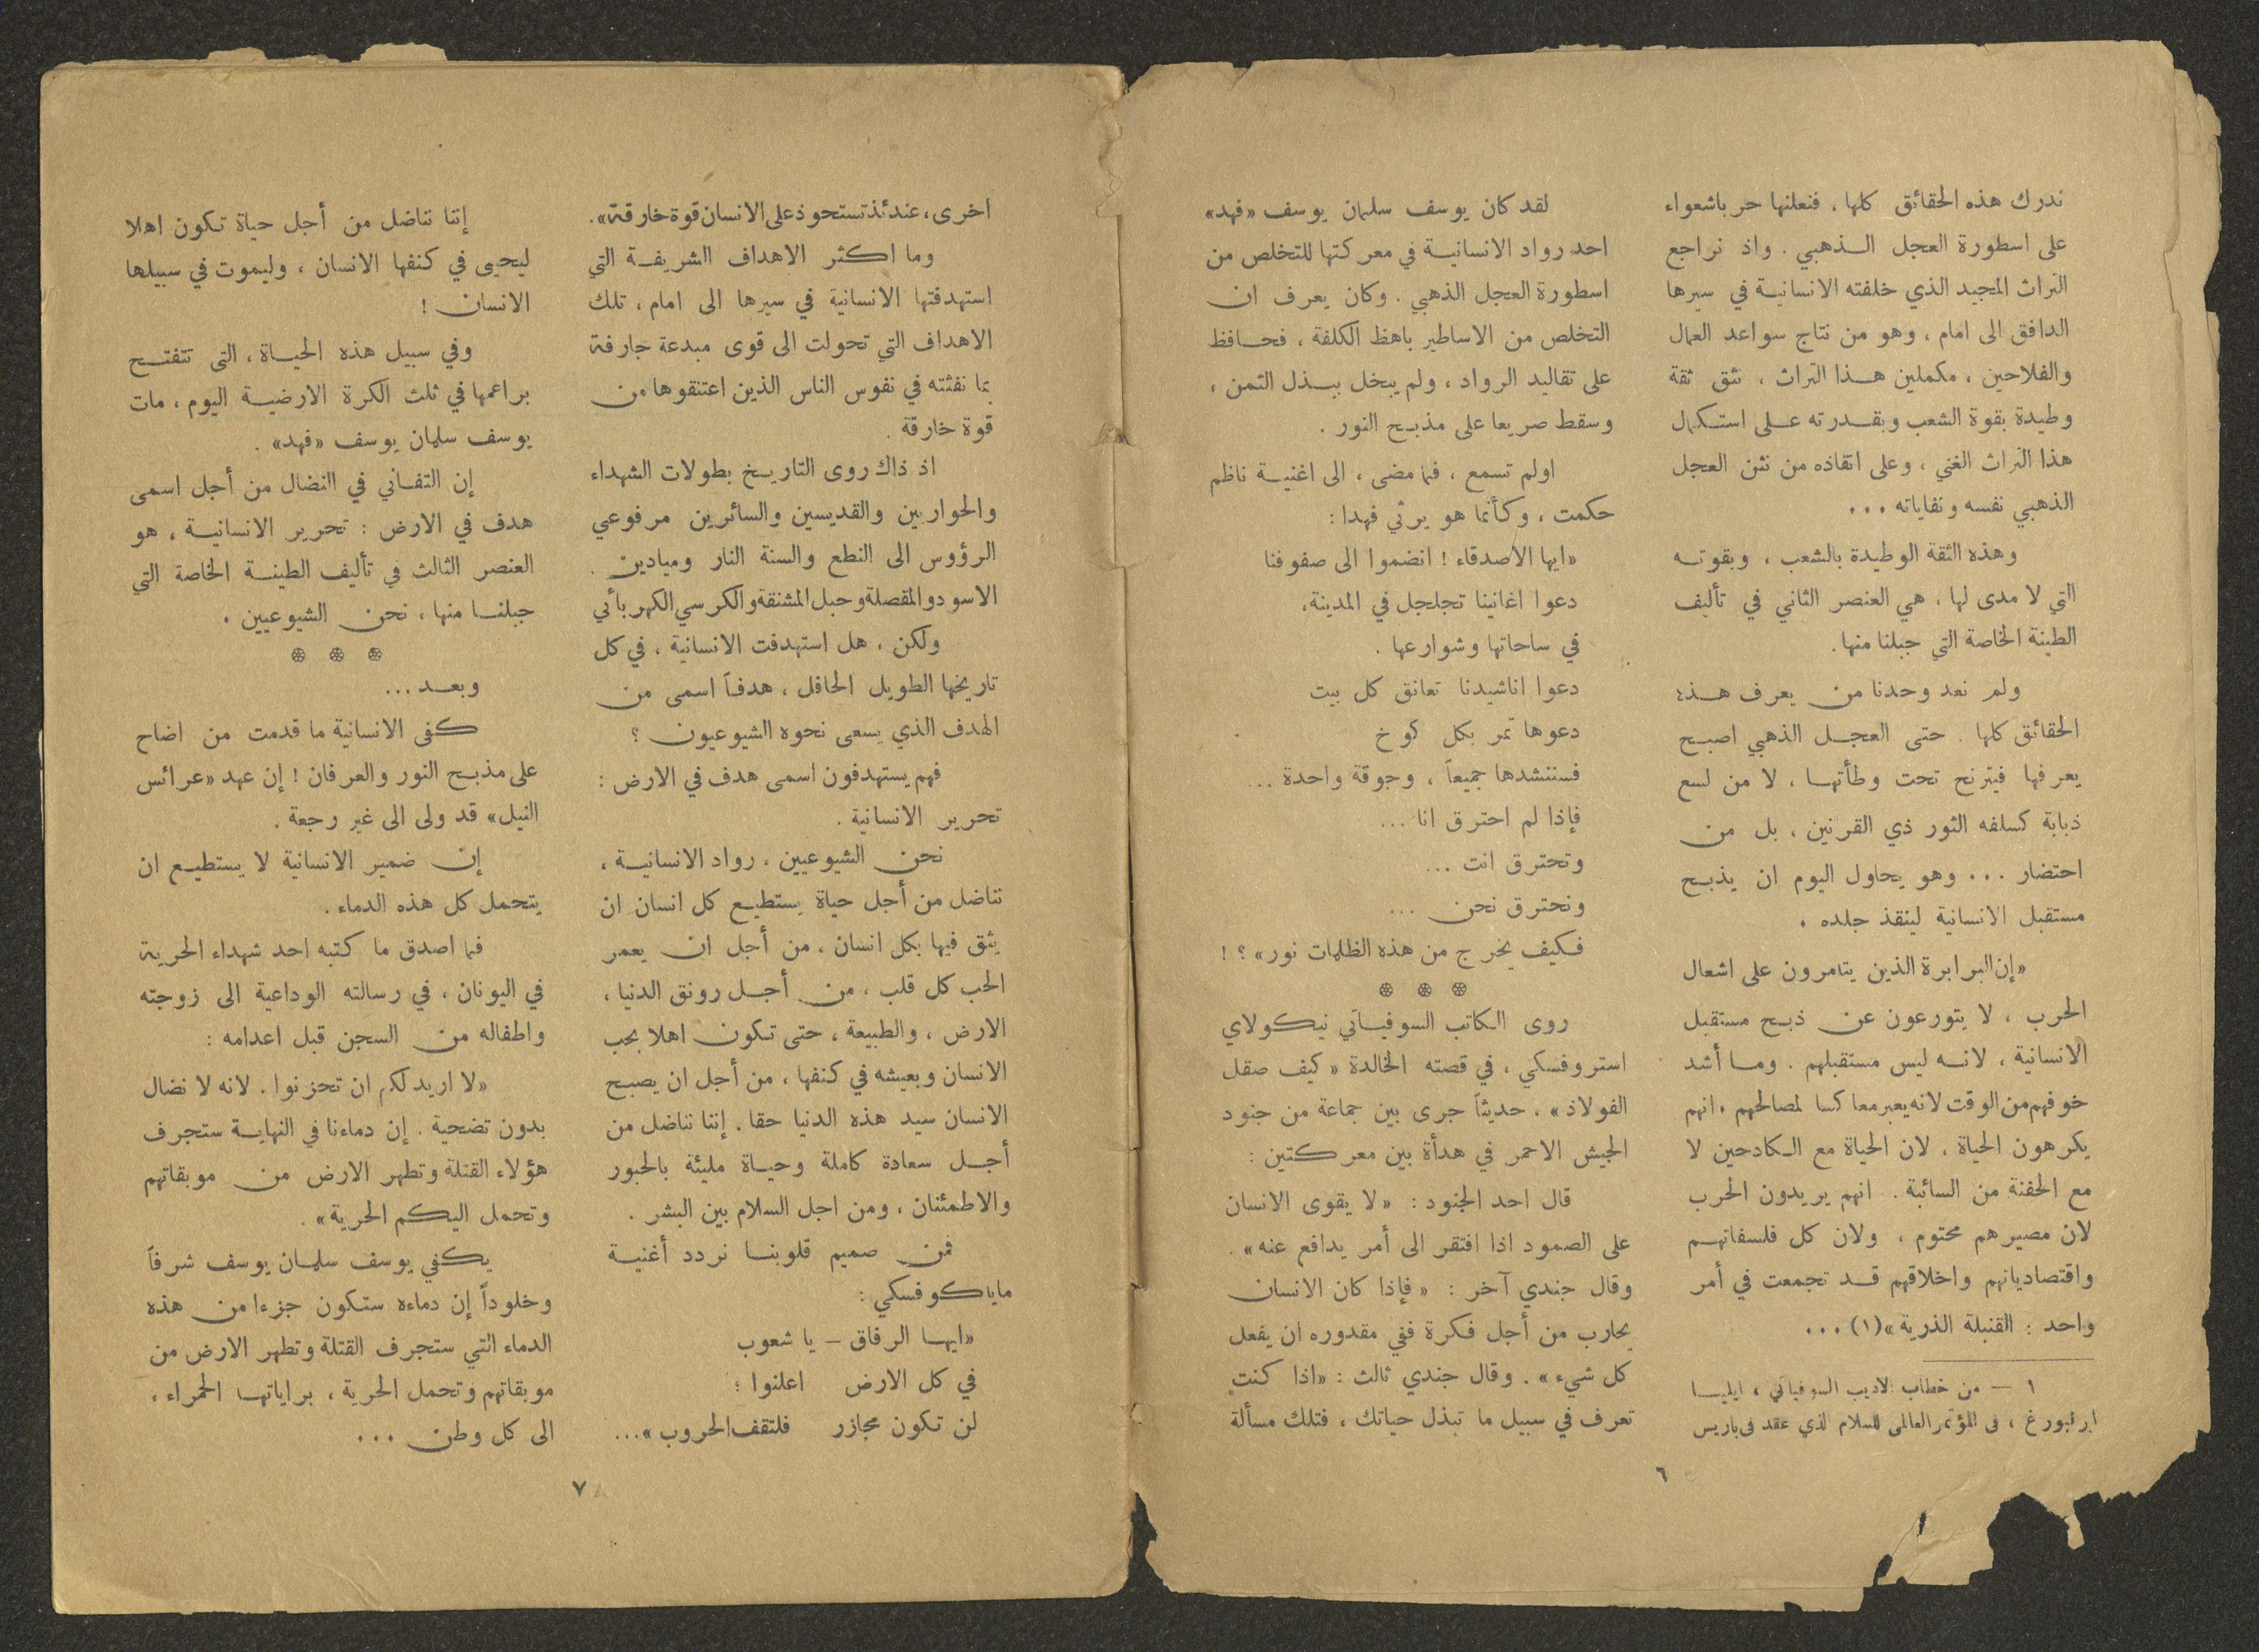 ندرك هذه الحقائق كلها ، فنعلنها حرباشعواء
على اسطورة العجل الـذهبي . واذ نراجع
التراث المجيد الذي خلفته الانسانية في سيرها
الدافق الى امام ، وهو من نتاج سواعد العمال
والفلاحين ، مكملين هـذا التراث ، نثق ثقة
وطيدة بقوة الشعب وبقـدرته عـلى استكمال
هذا التراث الغني ، وعلى انقاذه من نتن العجل
الذهبي نفسه ونفاياته ...
وهذه الثقة الوطيدة بالشعب ، وبقوتـه
التي لا مدى لها ، هي العنصر الثاني في تأليف
الطينة الخاصة التي جبلنا منها.
ولم نعد وحدنا من يعرف هـذه
الحقائق كلها . حتى العجـل الذهبي اصبـح
يعرفها فيترنح تحت وطأتهـا ، لا من لسع
ذبابة كسلفه الثور ذي القرنين ، بل من
احتضار ... وهو يحاول اليوم ان يذبـح
مستقبل الانسانية لينقذ جلده .
«إن البرابرة الذين يتامرون على اشعال
الحرب ، لا يتورعون عن ذبـح مستقبل
الانسانية ، لانـه ليس مستقبلهم . ومـا أشد
خوفهم من الوقت لانه يعبر معاكسا لمصالحهم . انهم
يكرهون الحياة ، لان الحياة مع الكادحين لا
مع الحفنة من السائبة . انهم يريدون الحرب
لان مصيرهم محتوم ، ولان كل فلسفاتهـم
واقتصادياتهم واخلاقهم قـد تجمعت في أمر
واحد : القنبلة الذرية»(١) ...
١ — من خطاب الاديب السوفياتي ، ايليـا
ارنبورغ ، في المؤتمر العالمي للسلام الذي عقد في باريس
لقد كان يوسف سلمان يوسف «فهد»
احد رواد الانسانيـة في معركتها للتخلص من
اسطورة العجل الذهبي . وكان يعرف ان
التخلص من الاساطير باهظ الكلفة ، فحـافظ
على تقاليد الرواد ، ولم يبخل ببـذل الثمن ،
وسقط صريعا على مذبـح النور .
اولم تسمع ، فيما مضى ، الى اغنيـة ناظم
حكمت ، وكأنما هو يرثي فهدا :
«ايها الاصدقاء ! انضموا الى صفوفنا
دعوا اغانينا تجلجل في المدينة،
في ساحاتها وشوارعها .
دعوا اناشيدنا تعانق كل بيت
دعوها تمر بكل كوخ
فسننشدها جميعاً ، وجوقة واحدة ...
فإذا لم احترق انا ...
وتحترق انت ...
ونحترق نحن ...
فكيف يخرج من هذه الظلمات نور» ؟ !
❊ ❊ ❊
روى الكاتب السوفيـاتي نيكولاي
استروفسكي ، في قصته الخالدة «كيف صقل
الفولاذ» ، حديثاً جرى بين جماعة من جنود
الجيش الاحمر في هدأة بين معركتين :
قال احد الجنود : «لا يقوى الانسان
على الصمود اذا افتقر الى أمر يدافع عنه» .
وقال جندي آخر : «فإذا كان الانسان
يحارب من أجل فكرة ففي مقدوره ان يفعل
كل شيء» . وقال جندي ثالث : «اذا كنت
تعرف في سبيل ما تبذل حياتك ، فتلك مسألة
٦
اخرى، عندئذ تستحوذ على الانسان قوة خارقة».
وما اكثر الاهداف الشريفـة التي
استهدفتها الانسانية في سيرها الى امام ، تلك
الاهداف التي تحولت الى قوى مبدعة جارفة
بما نفثته في نفوس الناس الذين اعتنقوها من
قوة خارقة .
اذ ذاك روى التاريـخ بطولات الشهداء
والحواريين والقديسين والسائرين مرفوعي
الرؤوس الى النطع والسنة النار وميادين .
الاسود والمقصلة وحبل المشنقة والكرسي الكهربائي
ولكن ، هل استهدفت الانسانية ، في كل
تاريخها الطويل الحافل ، هدفـاً اسمى من
الهدف الذي يسعى نحوه الشيوعيون ؟
فهم يستهدفون اسمى هدف في الارض :
تحرير الانسانية .
نحن الشيوعيين ، رواد الانسانيـة ،
نناضل من أجل حياة يستطيـع كل انسان ان
يثق فيها بكل انسان ، من أجل ان يعمر
الحب كل قلب ، من أجـل رونق الدنيا ،
الارض ، والطبيعة ، حتى تكون اهلا بحب
الانسان وبعيشه في كنفها ، من أجل ان يصبـح
الانسان سيد هذه الدنيا حقا . إننا نناضل من
أجـل سعادة كاملة وحيـاة مليئة بالحبور
والاطمئنان ، ومن اجل السلام بين البشر .
فمن صميم قلوبنـا نردد أغنيـة
ماياكوفسكي :
«ايهـا الرفاق — يا شعوب
في كل الارض اعلنوا :
لن تكون مجازر فلتقف الحروب» ...
إننا نناضل من أجل حياة تكون اهلا
ليحيى في كنفها الانسان ، وليموت في سبيلها
الانسان !
وفي سبيل هذه الحيـاة ، التي تتفتـح
براعمها في ثلث الكرة الارضيـة اليوم ، مات
يوسف سلمان يوسف «فهد» .
إن التفـاني في النضال من أجل اسمى
هدف في الارض : تحرير الانسانيـة ، هو
العنصر الثالث في تأليف الطينـة الخاصة التي
جبلنـا منها ، نحن الشيوعيين .
❊ ❊ ❊
وبعـد ...
كفى الانسانية ما قدمت من اضاح
على مذبـح النور والعرفان ! إن عهد «عرائس
النيل» قد ولى الى غير رجعة .
إن ضمير الانسانية لا يستطيـع ان
يتحمل كل هذه الدماء .
فما اصدق ما كتبه احد شهداء الحرية
في اليونان ، في رسالته الوداعية الى زوجته
واطفاله من السجن قبل اعدامه :
«لا اريد لكم ان تحزنوا . لانه لا نضال
بدون تضحية . إن دماءنا في النهايـة ستجرف
هؤلاء القتلة وتطهر الارض من موبقاتهم
وتحمل اليكم الحرية» .
يكفي يوسف سلمـان يوسف شرفاً
وخلوداً إن دماءه ستكون جزءا من هذه
الدماء التي ستجرف القتلة وتطهر الارض من
موبقاتهم وتحمل الحرية ، براياتهـا الحمراء ،
الى كل وطن ...
٧